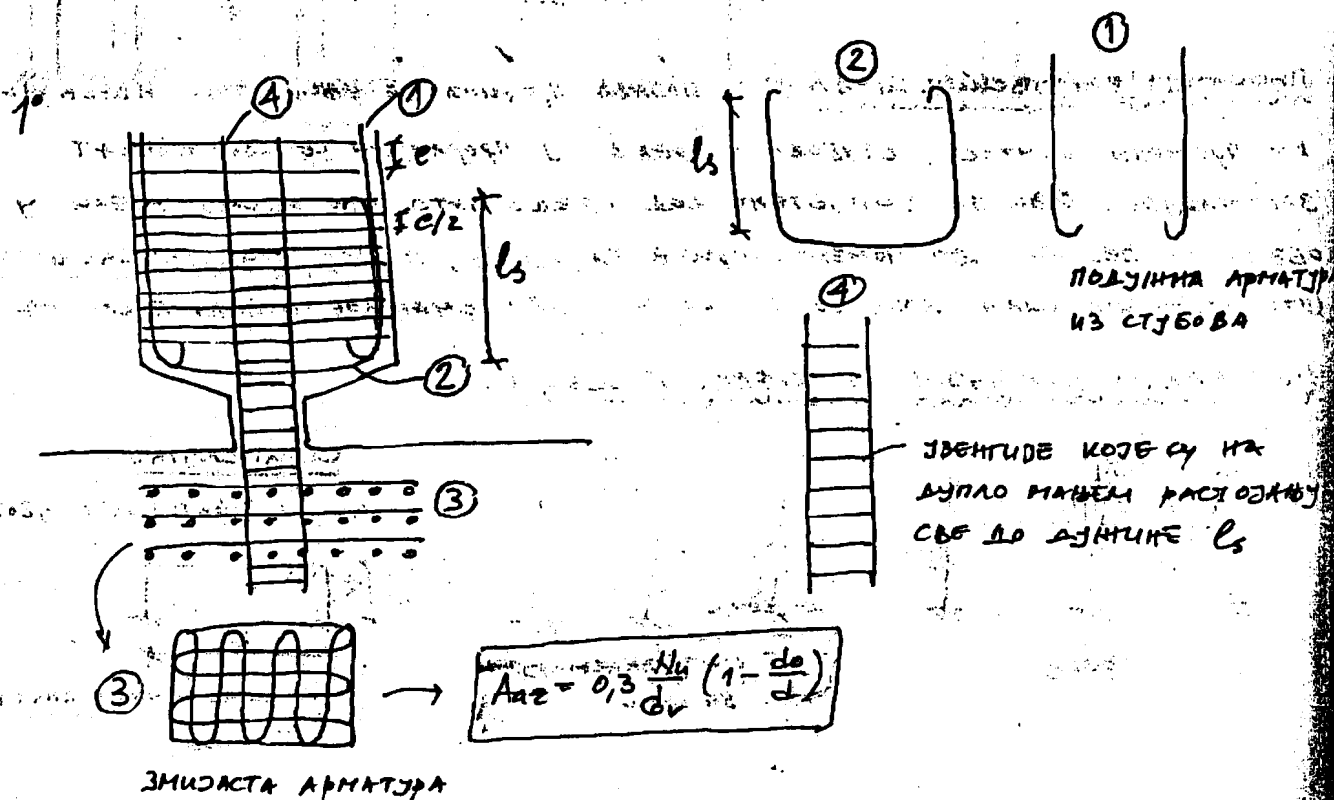 1°
④
①
e
e/2
ls
②
③
③
ЗМИЈАСТА АРМАТУРА
Aaz = 0,3 Nu/σv (1 - do/d)
②
ls
①
ПОДУЖНА АРМАТУРА
ИЗ СТУБОВА
④
УЗЕНГИЈЕ КОЈЕ СУ НА
ДУПЛО МАЊЕМ РАСТОЈАЊУ
СВЕ ДО ДУЖИНЕ ls